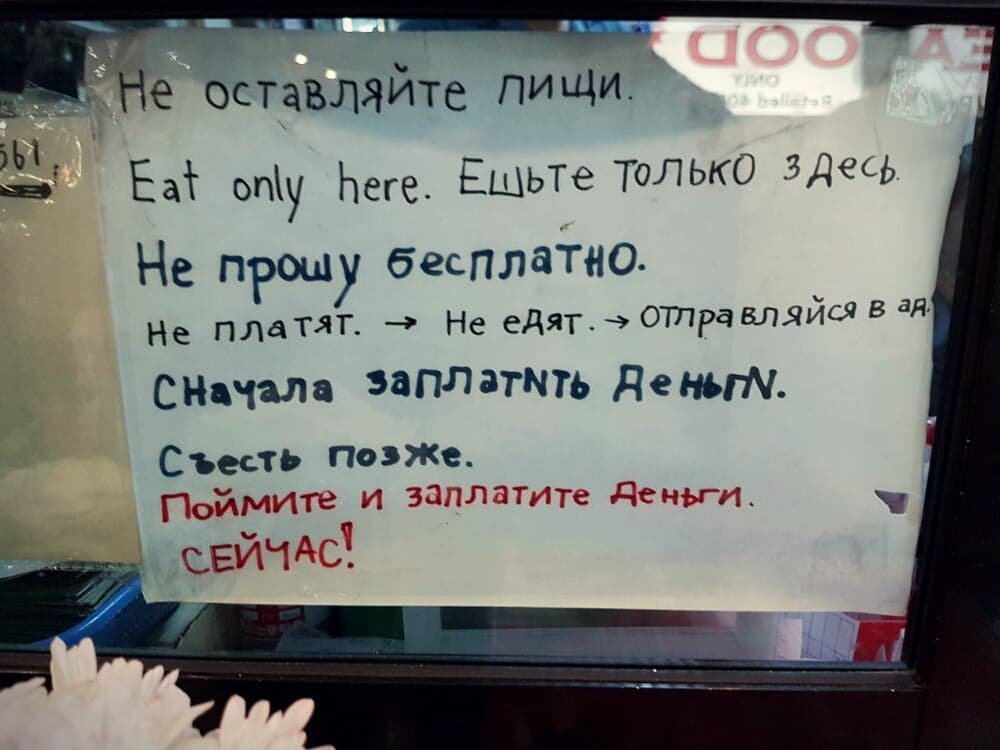 Не оставляйте пищи.
Eat only here. Ешьте только здесь.
Не прошу бесплатно.
Не платят. → Не едят. → Отправляйся в ад.
Сначала заплатNть деньгN.
Съесть позже.
Поймите и заплатите деньги.
СЕЙЧАС!
561
FOOD
ONLY